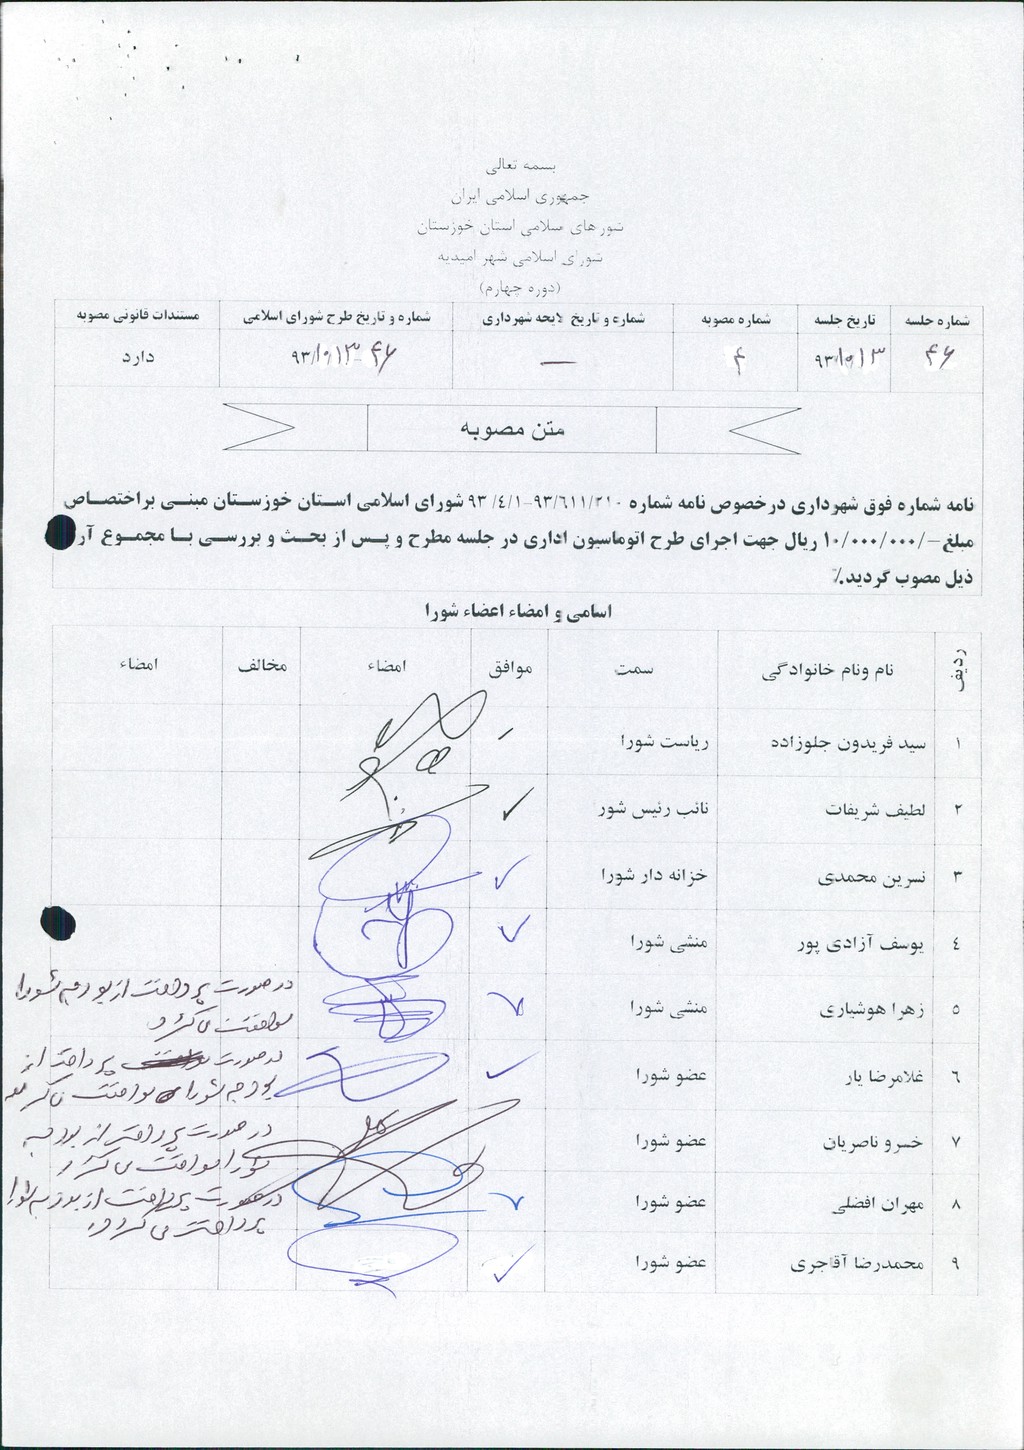 بسمه تعالی
جمهوری اسلامی ایران
شورهای سلامی استان خوزستان
شورای اسلامی شهر امیدیه
(دوره چهارم)
شماره جلسه
تاریخ جلسه
شماره مصوبه
شماره و تاریخ لایحه شهرداری
شماره و تاریخ طرح شورای اسلامی
مستندات قانونی مصوبه
۴۶
۹۳/۱۰/۱۳
۴
—
۴۶ ۹۳/۱۰/۱۳
دارد
متن مصوبه
نامه شماره فوق شهرداری درخصوص نامه شماره ۹۳/۶۱۱/۲۱۰-۹۳/۴/۱ شورای اسلامی استان خوزستان مبنی براختصاص
مبلغ-/۱۰/۰۰۰/۰۰۰ ریال جهت اجرای طرح اتوماسیون اداری در جلسه مطرح و پس از بحث و بررسی با مجموع آر
ذیل مصوب گردید.٪
اسامی و امضاء اعضاء شورا
ردیف
نام ونام خانوادگی
سمت
موافق
امضاء
مخالف
امضاء
۱ سید فریدون جلوزاده ریاست شورا
۲ لطیف شریفات نائب رئیس شور ✓
۳ نسرین محمدی خزانه دار شورا ✓
۴ یوسف آزادی پور منشی شورا ✓
۵ زهرا هوشیاری منشی شورا
در صورت پرداخت از بودجه شورا
موافقت می گردد
۶ غلامرضا یار عضو شورا ✓
در صورت پرداخت از
بودجه شورا موافقت می گردد
۷ خسرو ناصریان عضو شورا
در صورت پرداخت از بودجه
شورا موافقت می گردد
۸ مهران افضلی عضو شورا
در صورت پرداخت از بودجه شورا
پرداخت می گردد
۹ محمدرضا آقاجری عضو شورا ✓